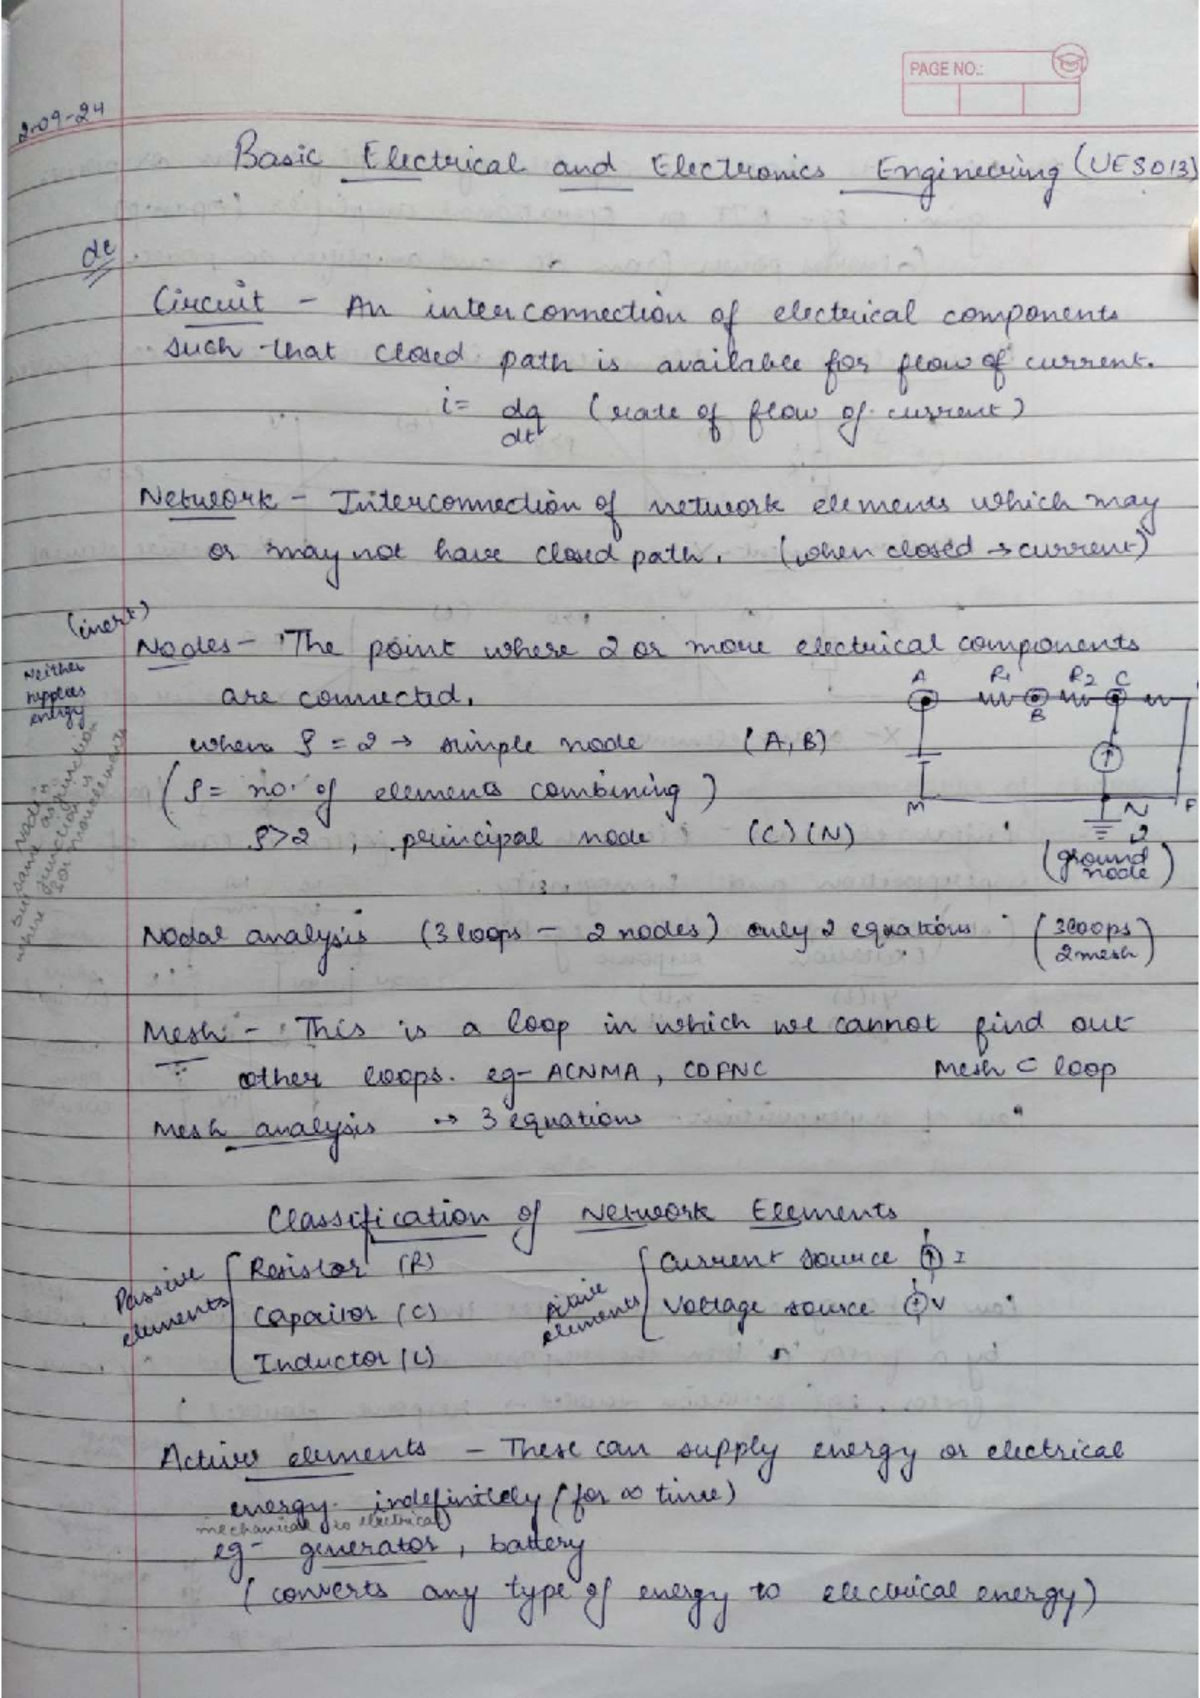 PAGE NO.:
2-09-24
Basic Electrical and Electronics Engineering (UES013)
dc
Circuit - An interconnection of electrical components
such that closed path is available for flow of current.
i = dq/dt (rate of flow of current)
Network - Interconnection of network elements which may
or may not have closed path. (when closed → current)
(inert)
Nodes - The point where 2 or more electrical components
are connected.
Neither
supplies
energy
when ρ = 2 → simple node (A, B)
(ρ = no. of elements combining)
ρ>2, principal node (C) (N)
A R1 R2 C
B
M N F
(ground
node)
node is
same as junction
where junction is
for more elements
Nodal analysis (3 loops - 2 nodes) only 2 equations (3loops
2mesh)
Mesh - This is a loop in which we cannot find out
other loops. eg- ACNMA, CDFNC Mesh ⊂ loop
Mesh analysis → 3 equations
Classification of Network Elements
Passive
elements
Resistor (R)
Capacitor (C)
Inductor (L)
Active
elements
Current source I
Voltage source V
Active elements - These can supply energy or electrical
energy indefinitely (for ∞ time)
mechanical to electrical
eg- generator, battery
(converts any type of energy to electrical energy)